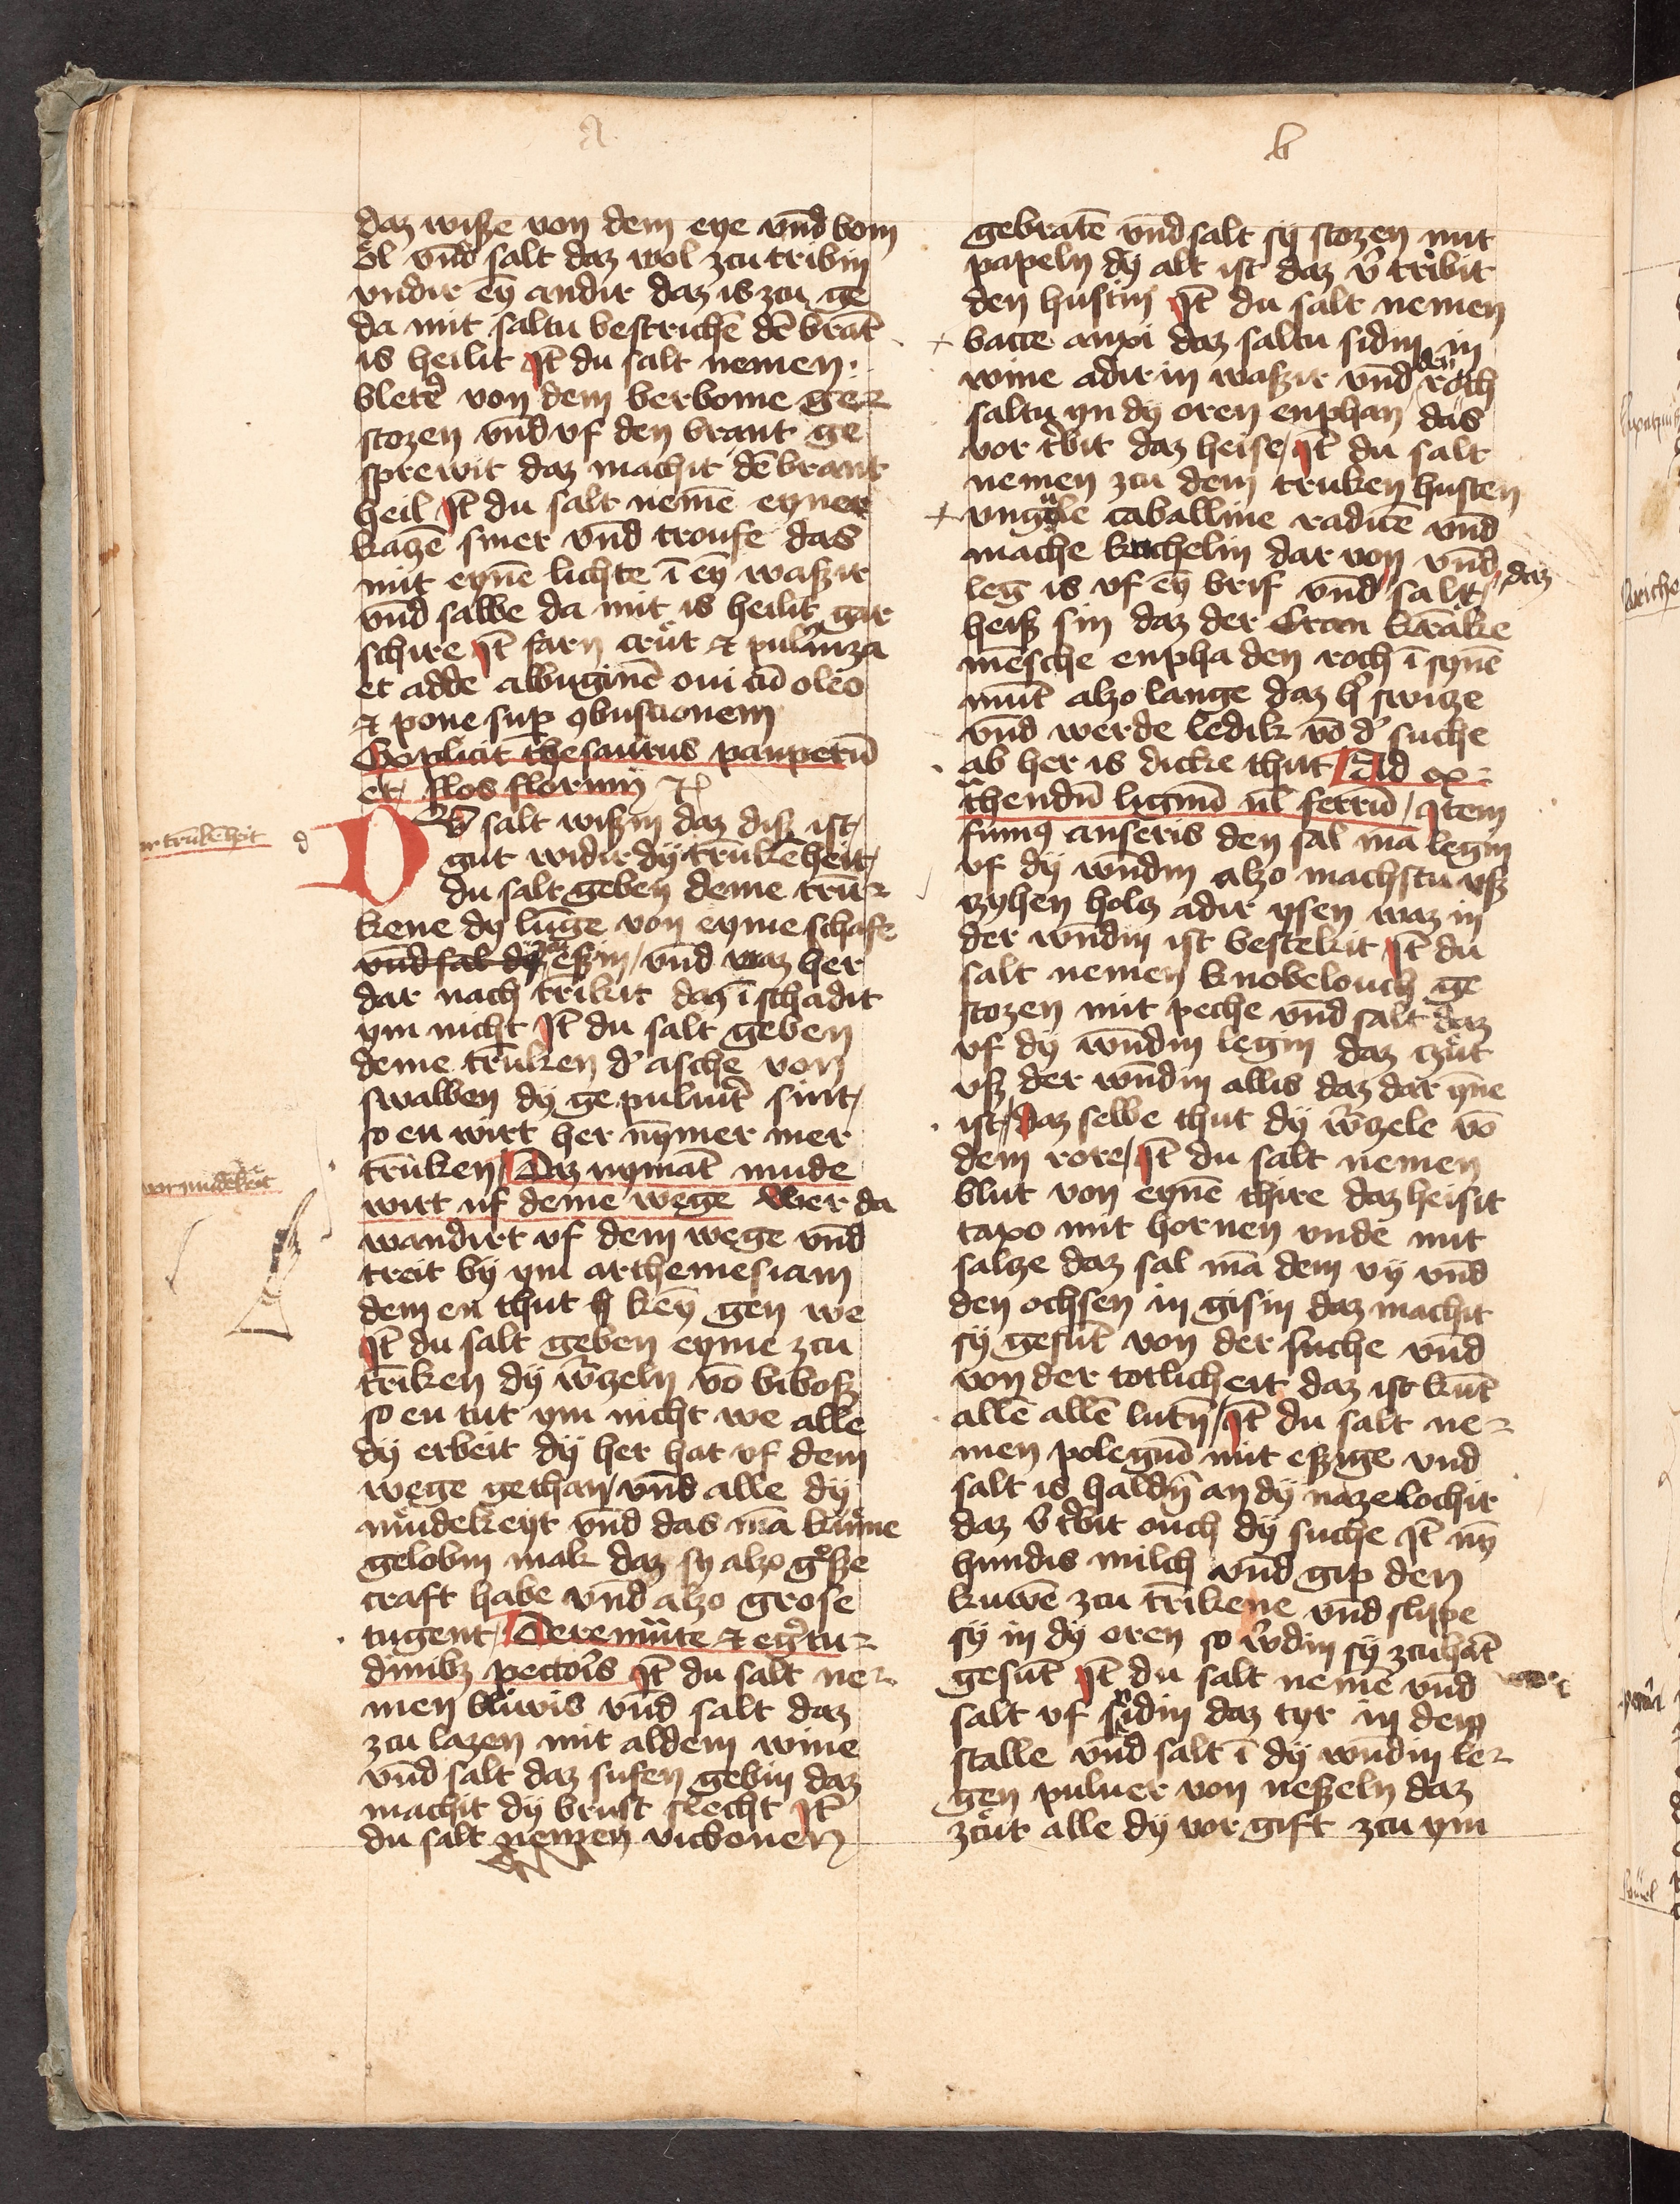 a
daz wisze von dem eye vnd bom
öl vnd salt daz wol zcu tribin
vndir eȳ andir daz is zcu ge
da mit saltu bestrichē dē brāt
is heilit Jt̄ du salt nemen
bleter von dem berbome ge-
stozen vnd vf den brant ge
sprewit daz machit dē brant
heil Jt̄ du salt nemē eyner
katzē smer vnd troufe das
mit eynē lichte ī eȳ waszir
vnd salbe da mit is heilit gar
schire Jt̄ farn crut et pulūiza
et adde albuginē oui cū oleo
et pone suꝑ ꝯbustionem
Explicit thesaurus pauperū
et flos florum
D salt wiszin daz disz ist
gut widir dy trūkēheit
du salt geben deme trū-
kene dy lūge von eyme schafe
vnd sal dy eszin / vnd waz her
dar nach trīkit daz ī schadit
ym nicht Jt̄ du salt geben
deme trūken d' asche von
swalben dy ge puluirt sint /
so en wirt her nȳmer mer
trūken / Daz nymāt mude
wirt uf deme wege Wer da
wandirt vf dem wege vnd
treit by ym arthemesiam
dem en thut keȳ gen we
Jt̄ du salt geben eyme zcu
trīken dy w̄tzeln vō bibosz
so en tut ym nicht we alle
dy erbeit dy her hat vf dem
wege gethan / vnd alle dy
mudekeyt vnd das mā kume
gelobin mak daz sy alzo gosze
craft habe vnd alzo grose
tugent /
dinibz pectoris Jt̄ du salt ne-
men vnd salt daz
zcu lazen mit aldem wine
vnd salt daz sufen gebin daz
machit dy brust slecht Jt̄
du salt nemen vickonen
b
gebratē vnd salt sy stozen mit
papeln dy alt ist daz v̄ tribit
den hustin Jt̄ du salt nemen
bacce daz saltu sidin in
wine adir in waszir vnd den roch
saltu yn dy oren enphan das
vor tbit daz heise / Jt̄ du salt
nemen zcu dem truken husten
vngule caballine vnd
mache kuchelin dar von vnd
leg is vf eȳ brif vnd salt / daz
heisz sin daz der krāke
mēsche enpha den roch ī synē
mūt alzo lange daz h' switze
vnd werde ledik vō d' suche
ab her is dicke thut / Ad ex-
thendū lignū ul ferrū / Jtem
fumꝰ anseris den sal ma legin
vf dy wūdin alzo machstu vsz
tzyhen holtz adir ysen waz in
der wūdin ist bestekit Jt̄ du
salt nemen knobelouch ge
stozen mit peche vnd salt daz
vf dy wūdin legin daz czut
vsz der wūdin allis daz dar yne
ist / daz selbe thut dy w̄tzele vō
dem rore / Jt̄ du salt nemen
blut von eynē thire daz heisit
taxo mit hornen vnde mit
saltze daz sal mā dem vy vnd
den ochsen in gisin daz machit
sy gesūt von der suche vnd
von der totlicheit daz ist kūt
allē allē lutȳ / Jt̄ du salt ne-
men polegiū mit eszige vnd
salt is haldȳ an dy naze lochir
daz v̄ tbit ouch dy suche Jt̄ nȳ
hundis milch vnd gip den
kuwē zcu trīkene vnd slipe
sy in dy oren so w̄din sy zcuhāt
gesūt Jt̄ du salt nemē vnd
salt vf sidin daz tyr in dem
stalle vnd salt ī dy wūdin le-
gen puluer von neszeln daz
zcut alle dy vor gift zcu ym